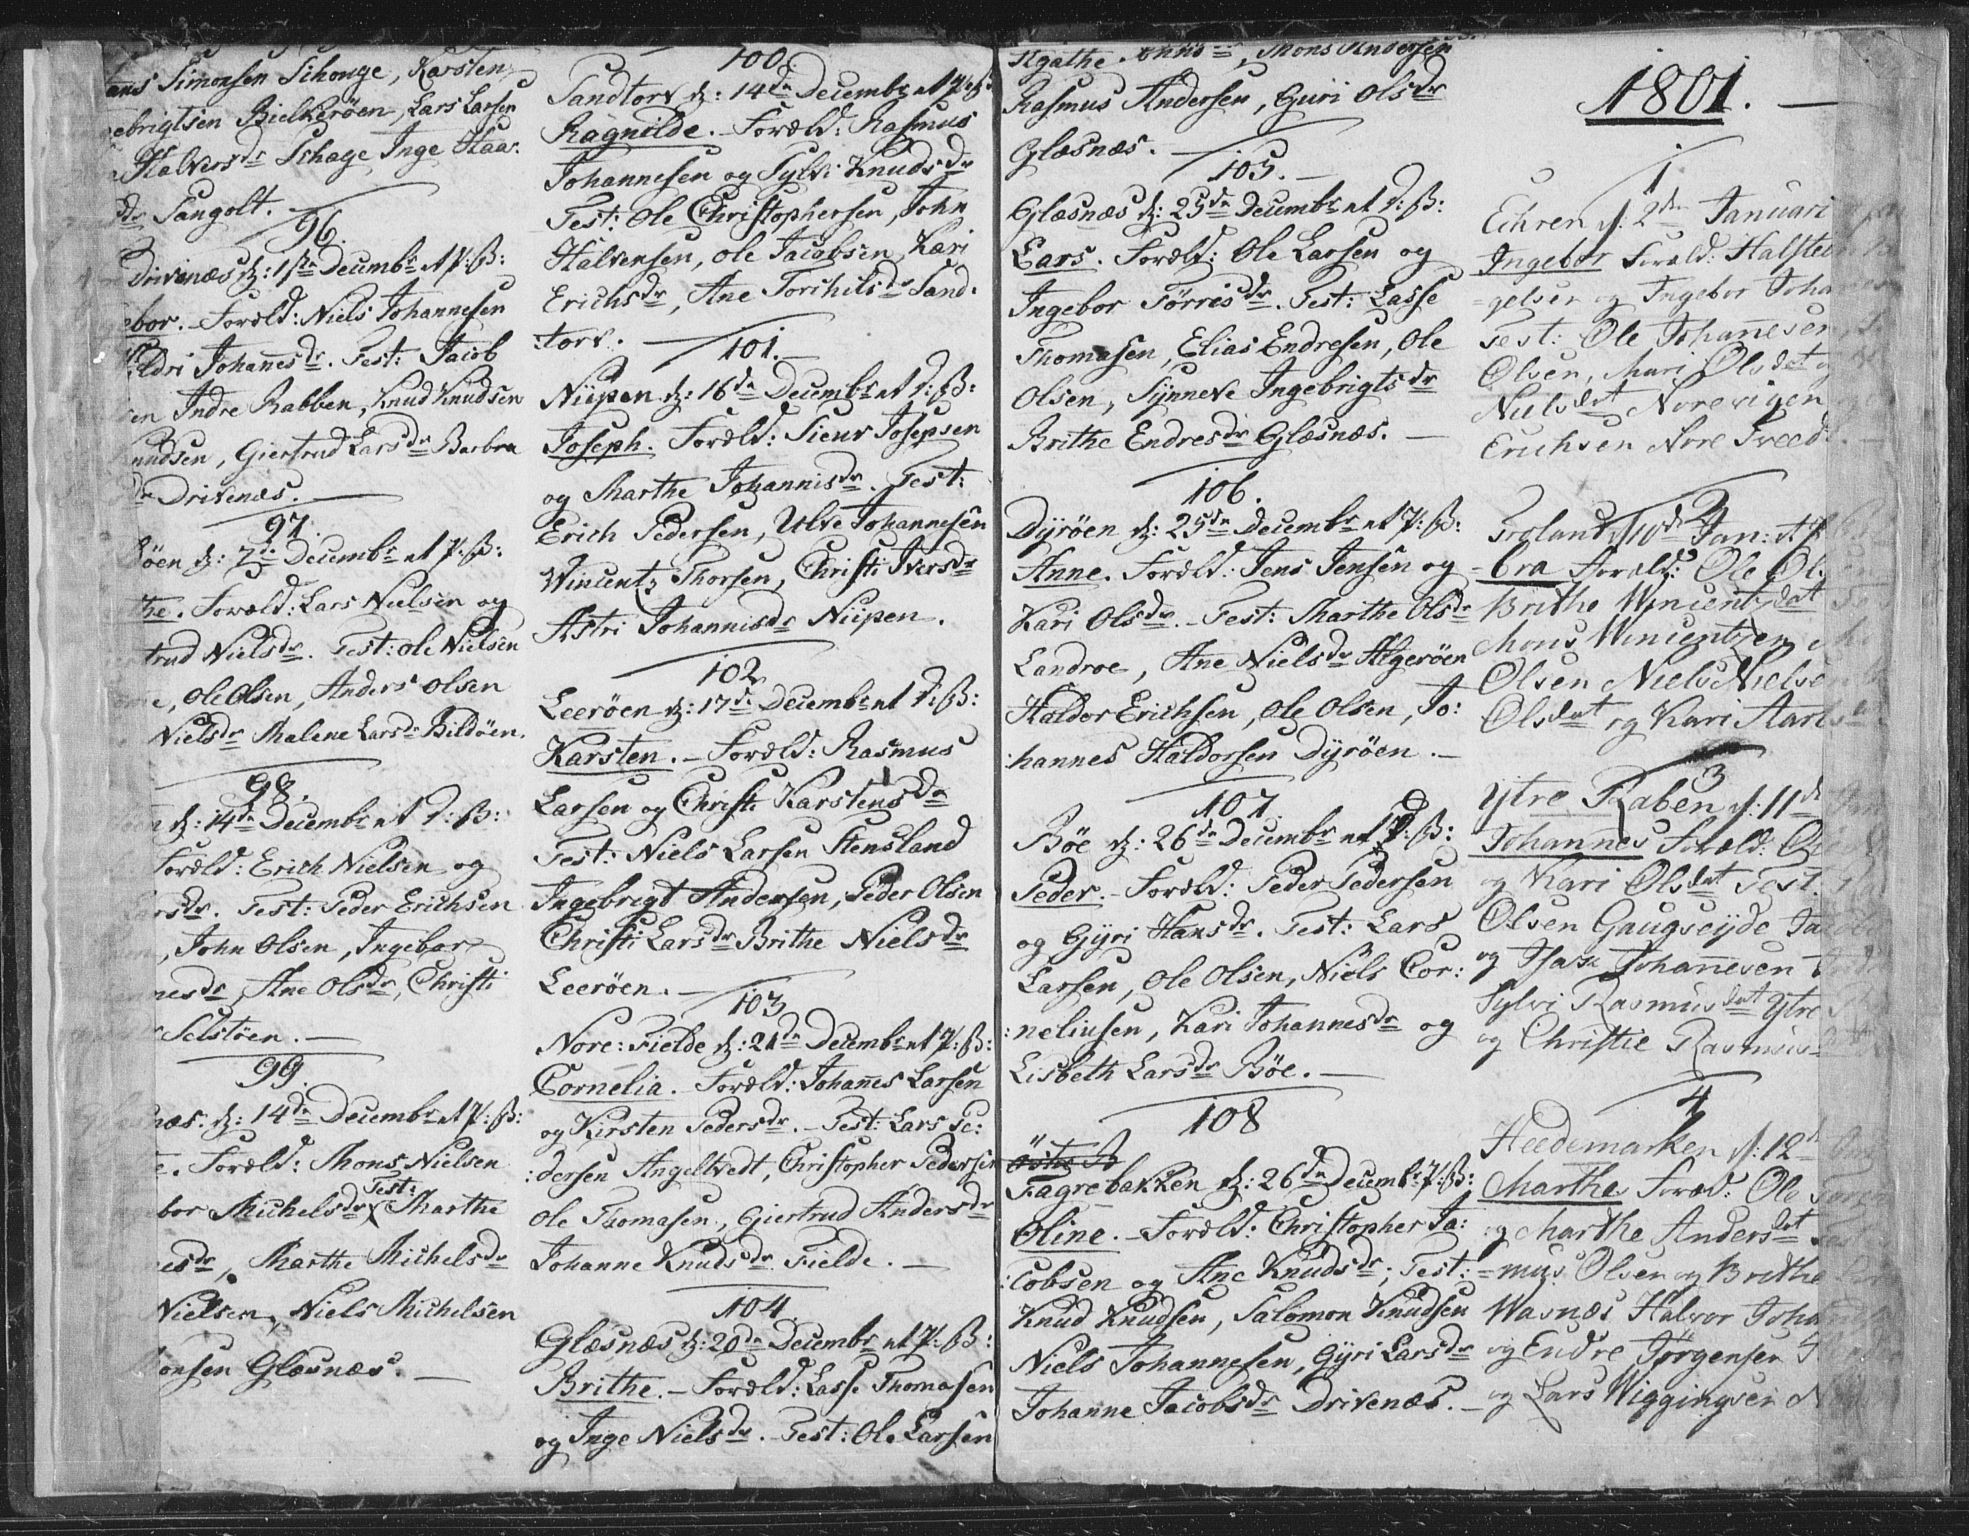 Simonsen Schouge, Karsten
ebrigtsen Bielkerøen, Lars Larsen
Halversdr Schage Inge Haa:
dr Sangolt.
96.
Drivenæs d: 1ste Decembr
ebor. Foræld: Niels Johannesen
Johañesdr. Test: Jacob
en Indre Rabben, Knud Knudsen
nudsen, Giertrud Larsdr Barbra
dr Drivenæs.
97.
øen d: 7de Decembr
the. Foræld: Lars Nielsen og
trud Nielsdr. Test: Ole Nielsen
Ole Olsen, Anders Olsen
Nielsdr Malene Larsdr Bildøen.
98.
d: 14de Decembr
Foræld: Erich Nielsen og
arsdr. Test: Peder Erichsen
John Olsen, Ingebor
nesdr, Ane Olsdr, Christi
Selstöen.
99.
næs. d: 14de Decembr
Foræld: Mons Nielsen
bor Michelsdr Test: Marthe
esdr, Marthe Michelsdr
Nielsen, Niels Michelsen
onsen Glæsnæs.
100.
Sandtorv d: 14de Decembr
Ragnilde. Foræld: Rasmus
Johannesen og Sylvi Knudsdr
Test: Ole Christophersen, John
Halvensen, Ole Jacobsen, Kari
Erichsdr, Ane Torchilsdr Sand:
:torv.
101.
Niipen d: 16de Decembr
Joseph. Foræld: Sieur Josepsen
og Marthe Johannisdr. Test:
Erich Pedersen, Ulve Johannesen
Wincentz Thorsen, Christi Iversdr
Astri Johannisdr Niipen.
102
Leerøen d: 17de Decembr
Karsten. Foræld: Rasmus
Larsen og Christi Karstensdr
Test: Niels Larsen Stensland
Ingebrigt Andersen, Peder Olsen
Christi Larsdr Brithe Nielsdr
Leerøen.
103
Nore: Fielde d: 21de Decembr
Cornelia. Foræld: Johañes Larsen
og Kirsten Pedersdr. Test: Lars Pe:
:dersen Angeltvedt, Christopher Pedersen
Ole Thomasen, Giertrud Andersdr
Johanne Knudsdr Fielde.
104
Glæsnæs d: 20de Decembr
Brithe. Foræld: Lasse Thomasen
og Inge Nielsdr. Test: Ole Larsen
Agathe, Mons Andersen
Rasmus Andersen, Guri Olsdr
Glæsnæs.
105.
Glæsnæs d: 25de Decembr
Lars. Foræld: Ole Larsen og
Ingebor Torrisdr. Test: Lasse
Thomasen, Elias Endresen, Ole
Olsen, Synneve Ingebrigtsdr
Brithe Endresdr Glæsnæs.
106.
Dyröen d: 25de Decembr
Anne. Foræld: Jens Jensen og
Kari Olsdr. Test: Marthe Olsdr
Landroe, Ane Nielsdr Algeröen
Haldor Erichsen, Ole Olsen, Jo:
:hannes Haldorsen Dyröen.
107.
Böe d: 26de Decembr
Peder. Foræld: Peder Pedersen
og Gyri Hansdr. Test: Lars
Larsen, Ole Olsen, Niels Cor:
:neliusen, Kari Johannesdr og
Lisbeth Larsdr Böe.
108
Fagrebakken d: 26de Decembr
Oline. Foræld: Christopher Ja:
:cobsen og Ane Knudsdr; Test:
Knud Knudsen, Salomon Knudsen
Niels Johannesen, Gyri Larsdr
Johanne Jacobsdr Drivenæs.
1801.
1
Echren d: 2den Januari
Ingebor Foræld: Halsteen
gelsen og Ingebor Johan
Test: Ole Johanesen
Olsen, Mari Olsdat
Nielsdat Norevigen
Erichsen Nore Treed
2
Troland d 10de Jan:
bra Foræld: Ole Ol
Brithe Wincentzdat
Mons Wincentzen
Olsen Niels Nielsen
Olsdat og Kari Aar
3
Ytre Raben d: 11de
Johannes Foræld:
og Kari Olsdat Test:
Olsen Gaugseyde
og Isac Johanesen
Sylvi Rasmusdat Ytre
og Christie Rasmus
4
Heedemarken d: 12
Marthe Foræld: Ole
og Marthe Andersdat
=mus Olsen og Brithe
Wasnæs Halvor Joha
og Endre Jørgensen
og Lars Wiggingsen